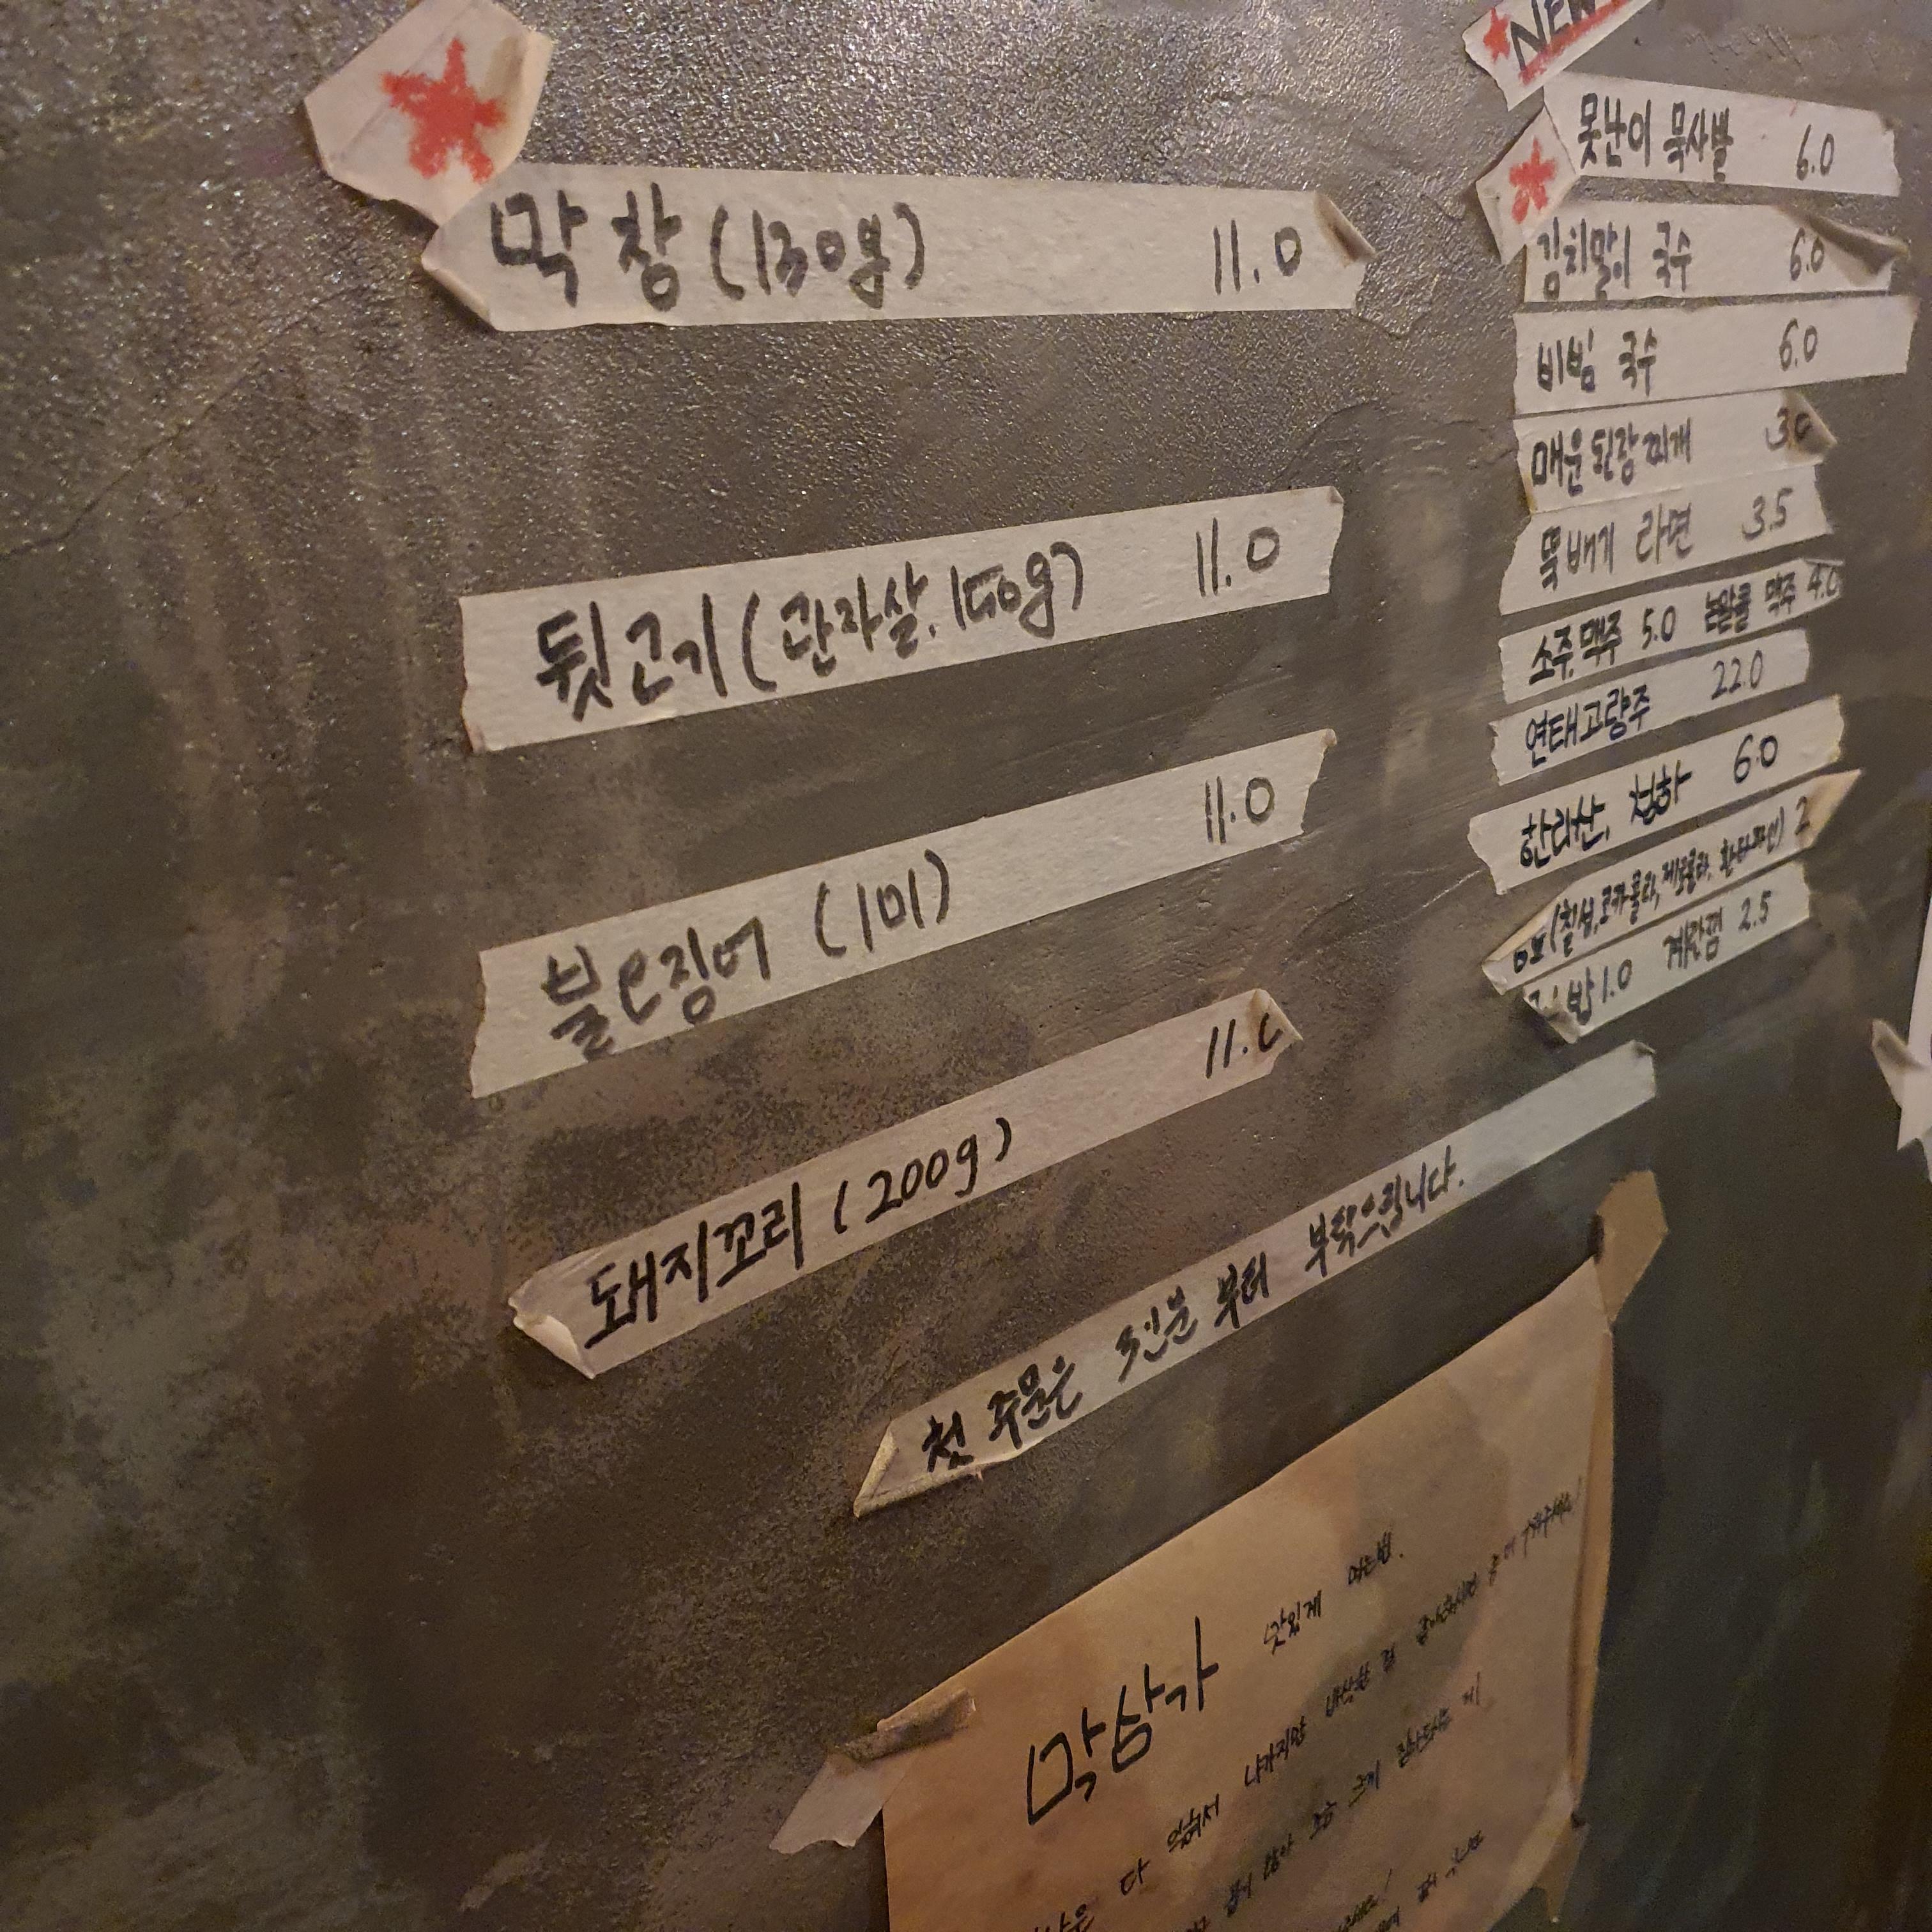 막창 (130g) 11.0
뒷고기 (관자살. 150g) 11.0
불오징어 (1미) 11.0
돼지꼬리 (200g) 11.0
첫 주문은 3인분 부터 부탁드립니다.
NEW
못난이 묵사발 6.0
김치말이 국수 6.0
비빔 국수 6.0
매운된장찌개 3.0
뚝배기 라면 3.5
소주.맥주 5.0 논알콜 맥주 4.0
연태고량주 22.0
한라산, 청하 6.0
(칠성,코카콜라,제로콜라, 환타파인) 2
밥 1.0 계란찜 2.5
막삼가 맛있게 먹는법.
다 익혀서 나가지만 바삭한 걸 좋아하시면